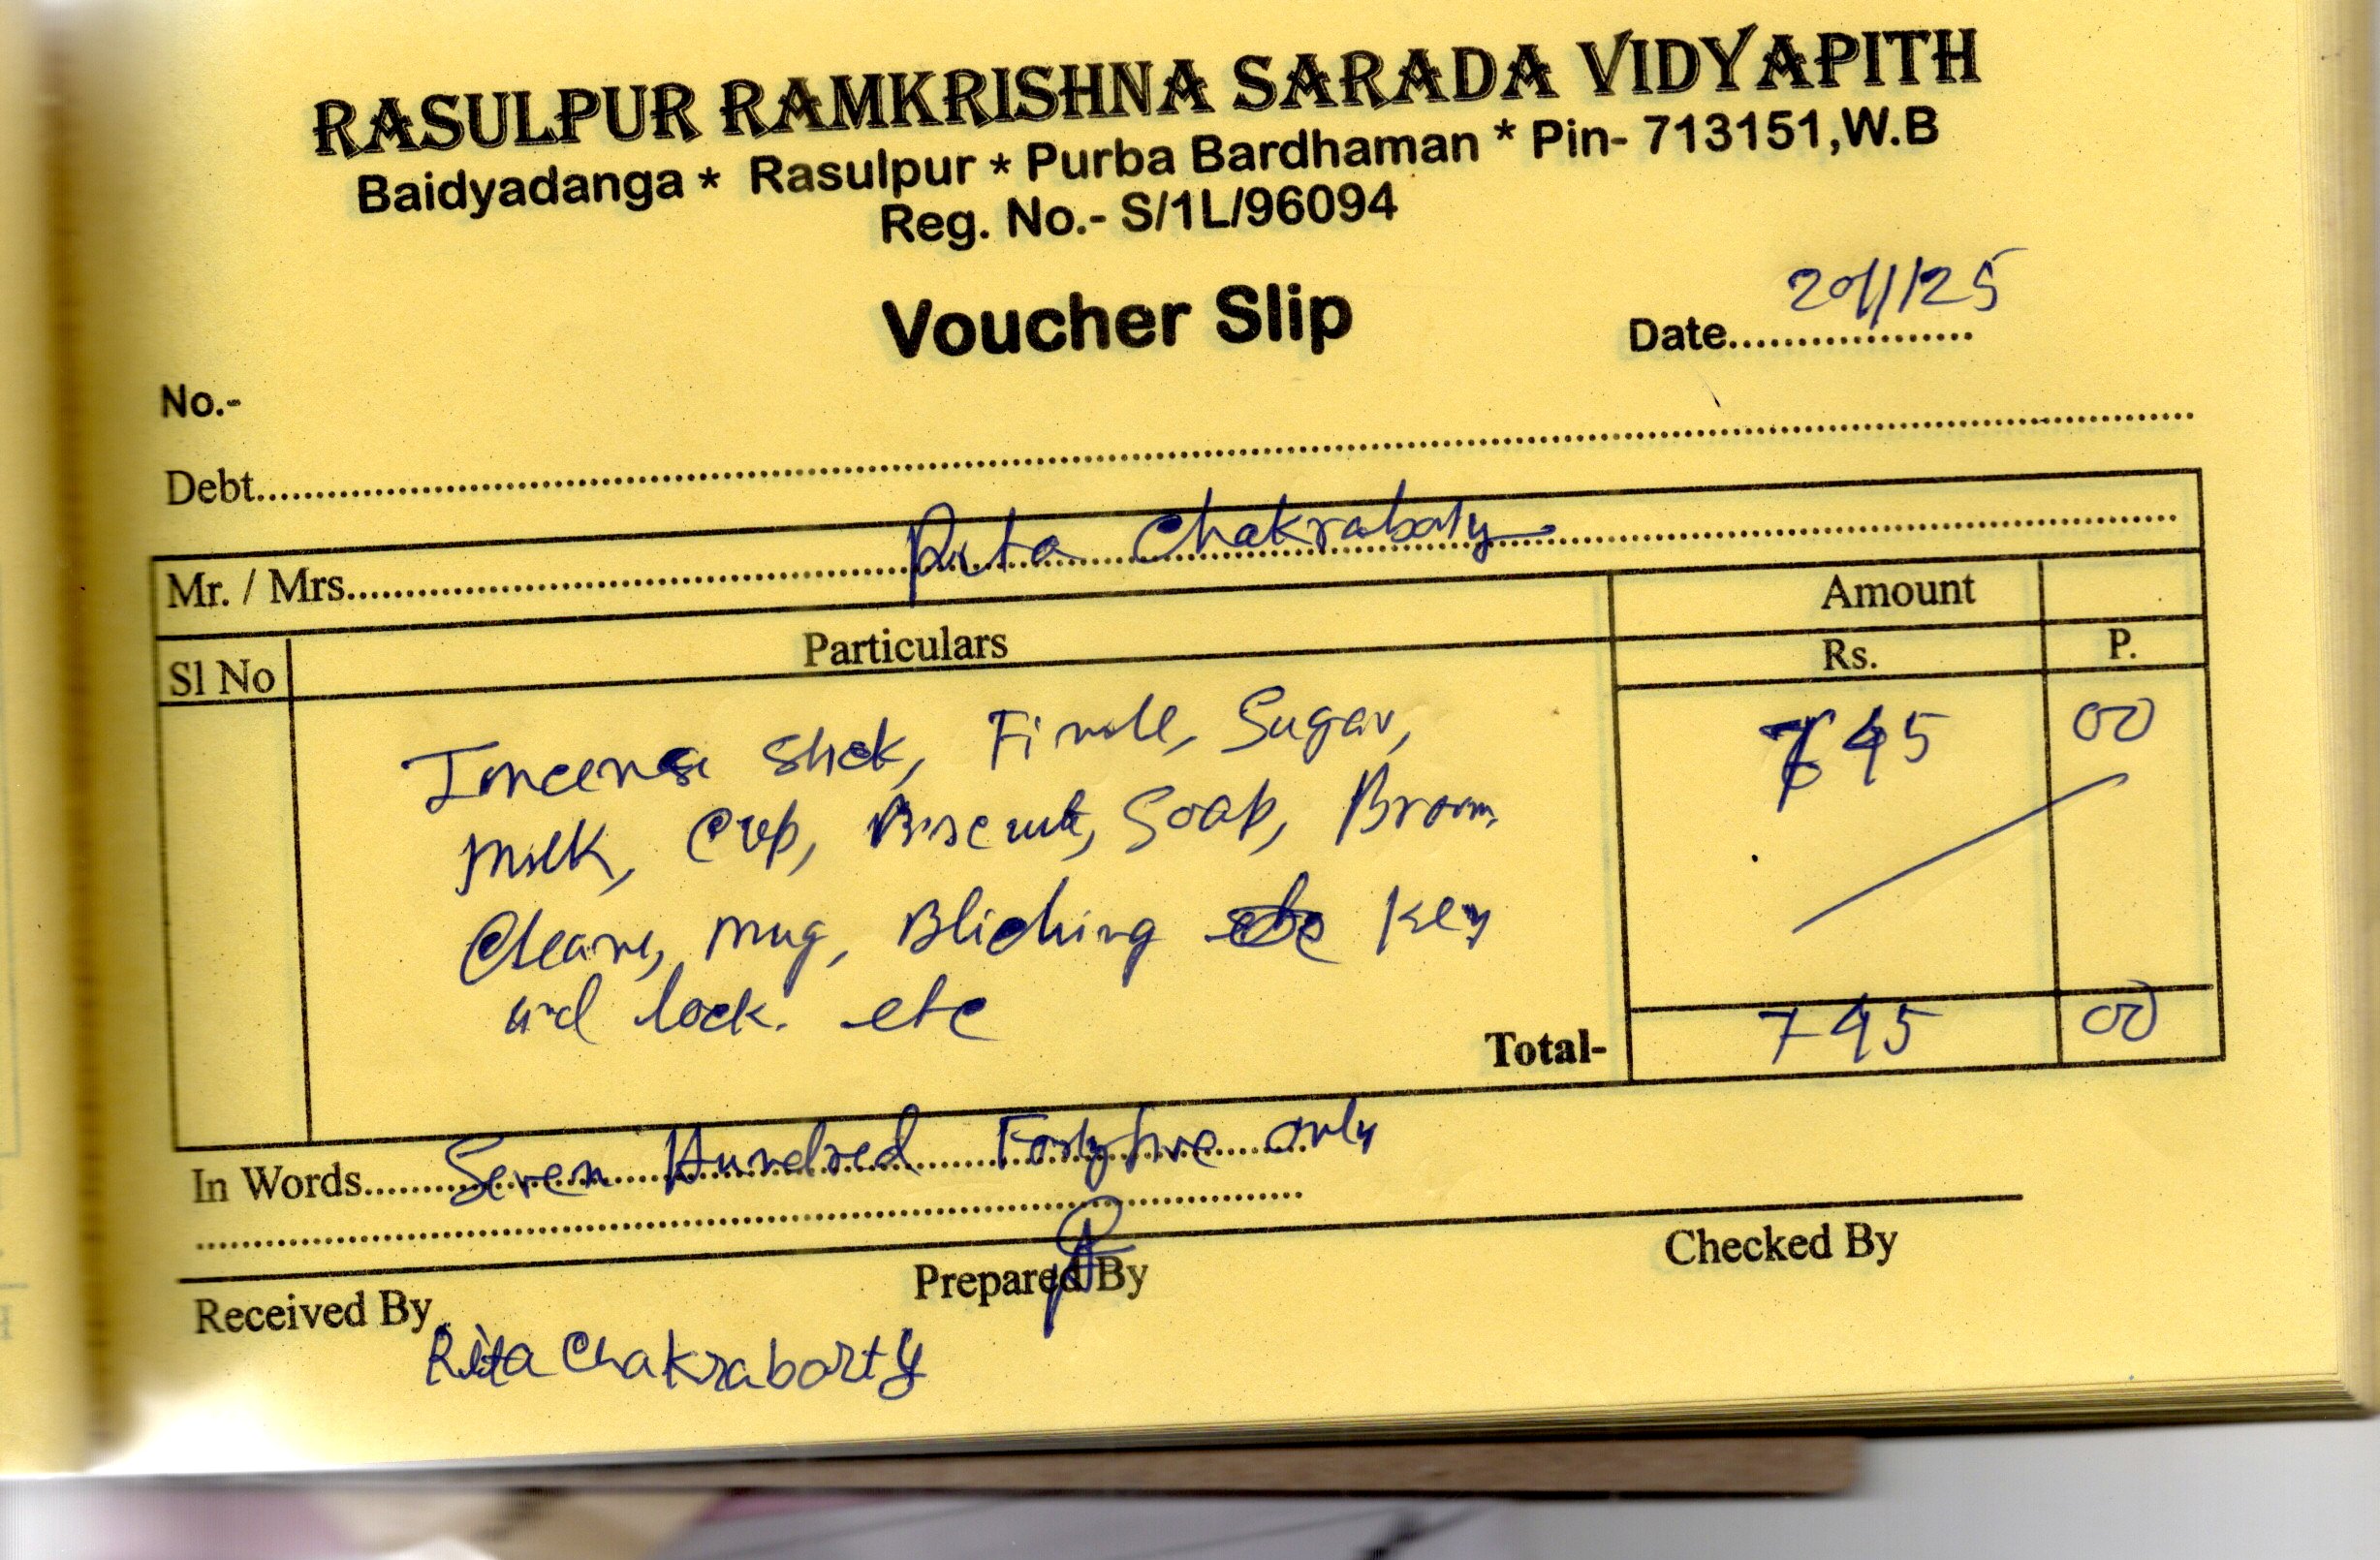 RASULPUR RAMKRISHNA SARADA VIDYAPITH
Baidyadanga * Rasulpur * Purba Bardhaman * Pin- 713151,W.B
Reg. No.- S/1L/96094
Voucher Slip
Date................... 20/1/25
No.-
Debt
Mr. / Mrs. Rita Chakraboty
Sl No Particulars Amount
Rs. P.
Incense Stick, Finole, Sugar, 745 00
Milk, Cup, Biscuit, Soap, Broom,
Cleane, mug, Bliching Key
and lock. etc
Total- 745 00
In Words Seven Hundred Forty five only
Received By Prepared By Checked By
Rita Chakraborty